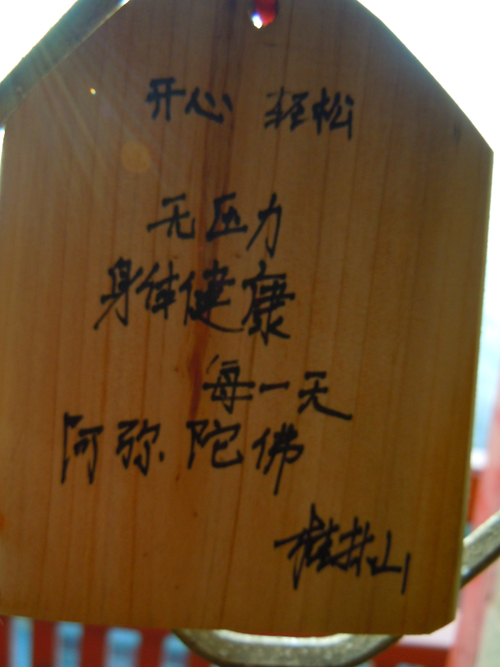 开心 轻松
无压力
身体健康
每一天
阿弥陀佛